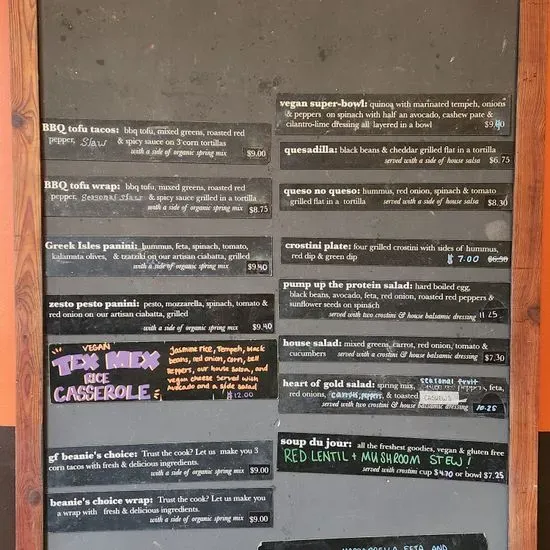 BBQ tofu tacos: bbq tofu, mixed greens, roasted red
pepper, Slaw & spicy sauce on 3 corn tortillas
with a side of organic spring mix $9.00
BBQ tofu wrap: bbq tofu, mixed greens, roasted red
pepper, Seasonal Slaw & spicy sauce grilled in a tortilla
with a side of organic spring mix $8.75
Greek Isles panini: hummus, feta, spinach, tomato,
kalamata olives, & tzatziki on our artisan ciabatta, grilled
with a side of organic spring mix $9.40
zesto pesto panini: pesto, mozzarella, spinach, tomato &
red onion on our artisan ciabatta, grilled
with a side of organic spring mix $9.40
VEGAN
TEX MEX
RICE
CASSEROLE
Jasmine rice, Tempeh, black
beans, red onion, corn, bell
Peppers, our house salsa, and
vegan cheese served with
Avocado and a side salad
$12.00
gf beanie's choice: Trust the cook? Let us make you 3
corn tacos with fresh & delicious ingredients.
with a side of organic spring mix $9.00
beanie's choice wrap: Trust the cook? Let us make you
a wrap with fresh & delicious ingredients.
with a side of organic spring mix $9.00
vegan super-bowl: quinoa with marinated tempeh, onions
& peppers on spinach with half an avocado, cashew pate &
cilantro-lime dressing all layered in a bowl $9.90
quesadilla: black beans & cheddar grilled flat in a tortilla
served with a side of house salsa $6.75
queso no queso: hummus, red onion, spinach & tomato
grilled flat in a tortilla served with a side of house salsa $8.30
crostini plate: four grilled crostini with sides of hummus,
red dip & green dip $7.00 $6.50
pump up the protein salad: hard boiled egg,
black beans, avocado, feta, red onion, roasted red peppers &
sunflower seeds on spinach
served with two crostini & house balsamic dressing 11.25
house salad: mixed greens, carrot, red onion, tomato &
cucumbers served with a crostini & house balsamic dressing $7.30
seasonal fruit
heart of gold salad: spring mix, peppers, feta,
red onions, carrots, peppers, & toasted CASHEWS
served with two crostini & house balsamic dressing 10.25
soup du jour: all the freshest goodies, vegan & gluten free
RED LENTIL + MUSHROOM STEW!
served with crostini cup $4.70 or bowl $7.25
FETA AND